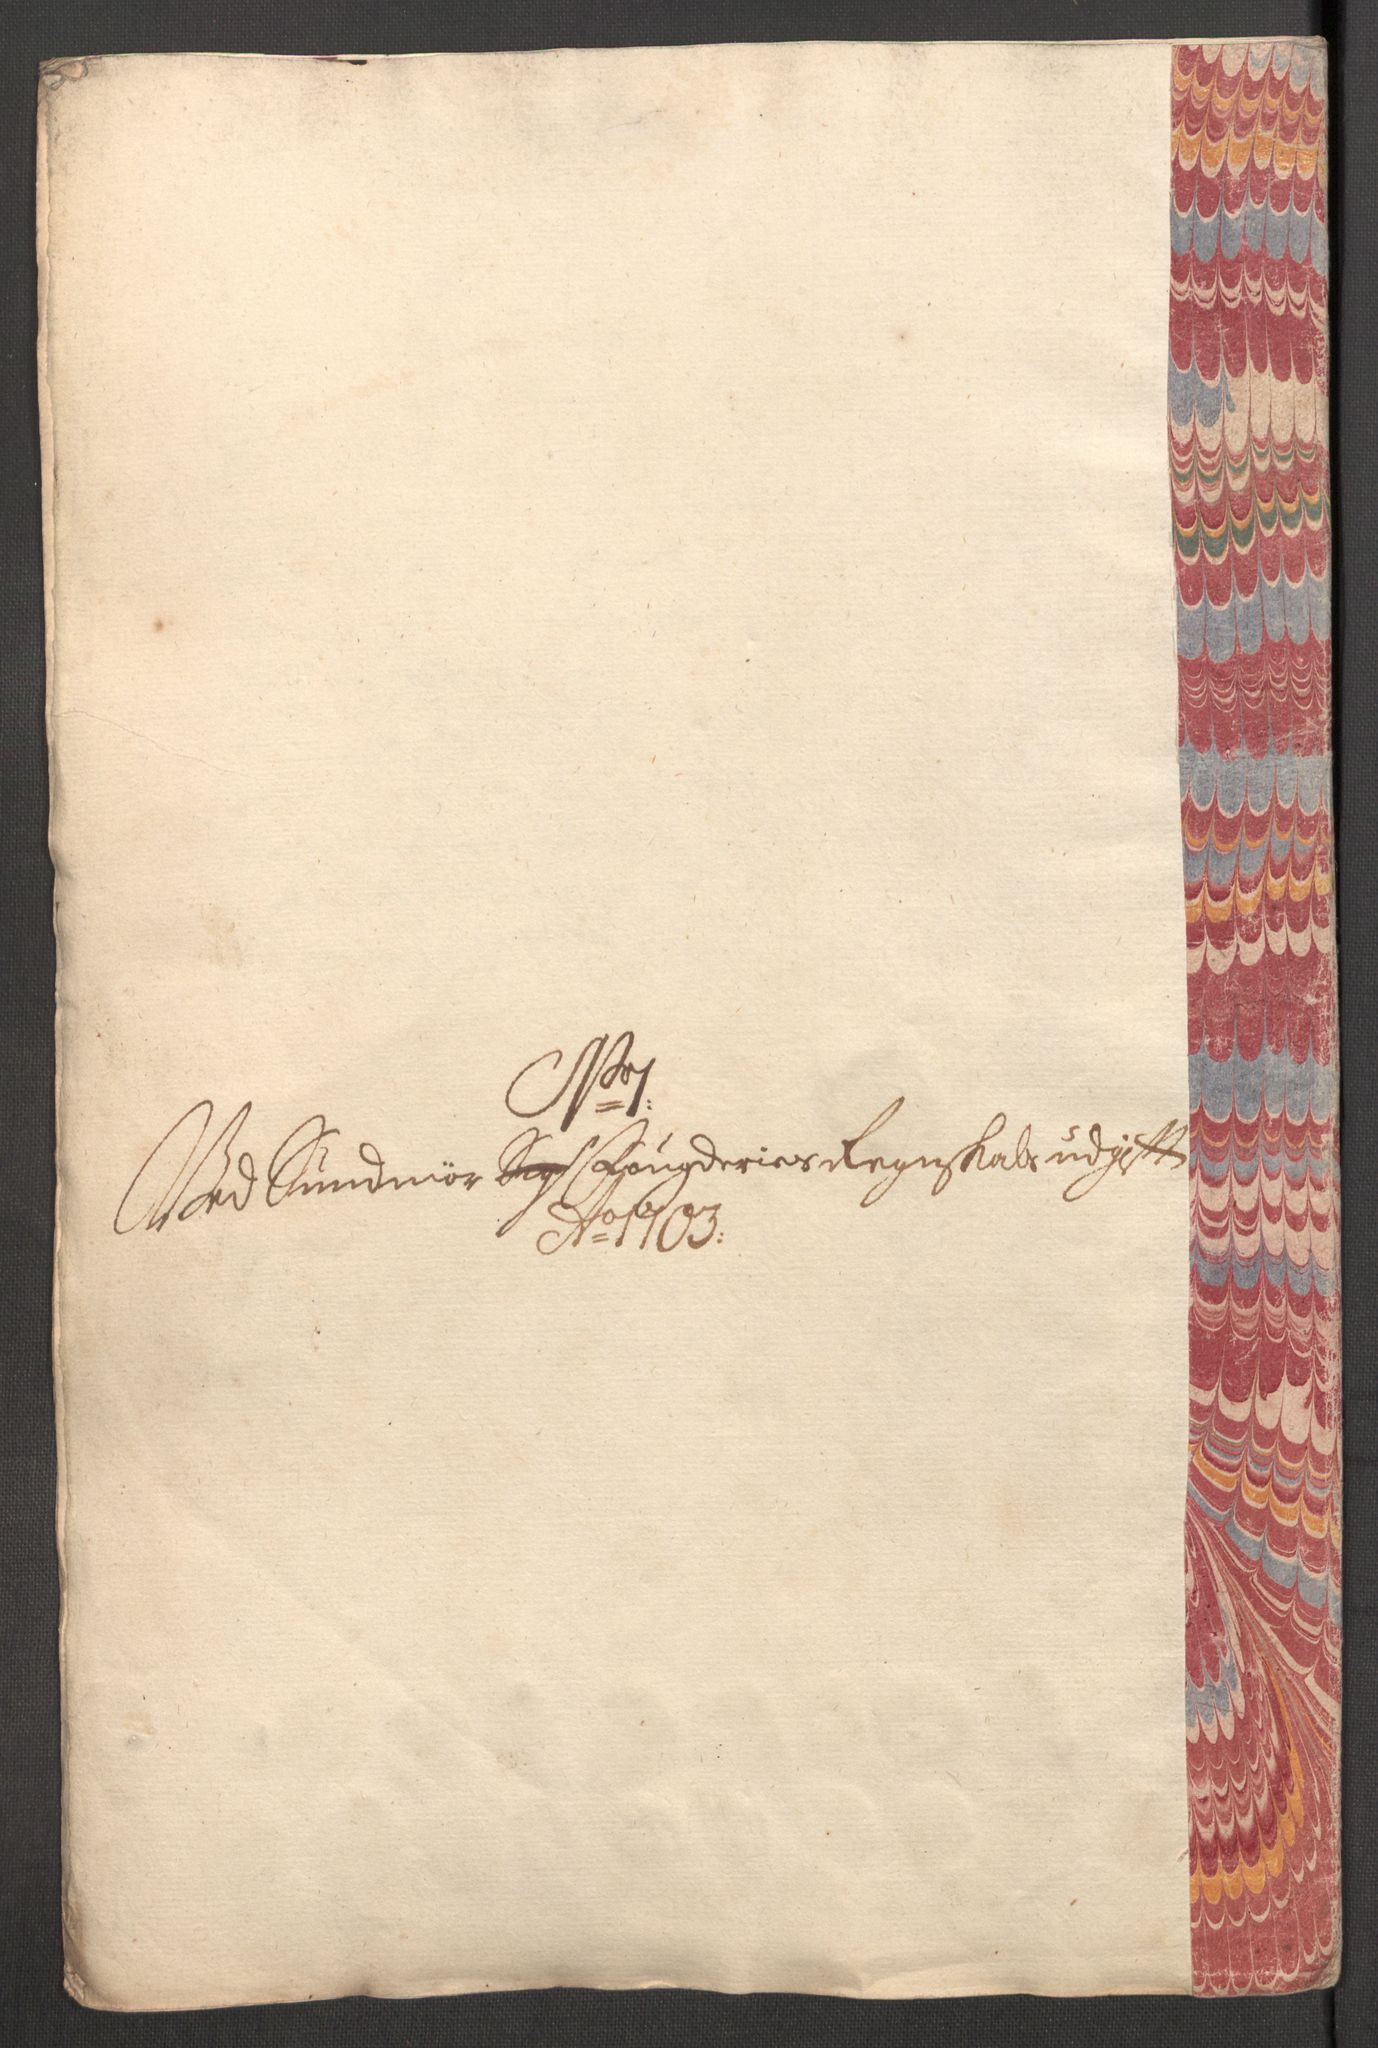 No 1:
Ved Sundmör Fougderies Regnskabs udgift
Ao 1703: